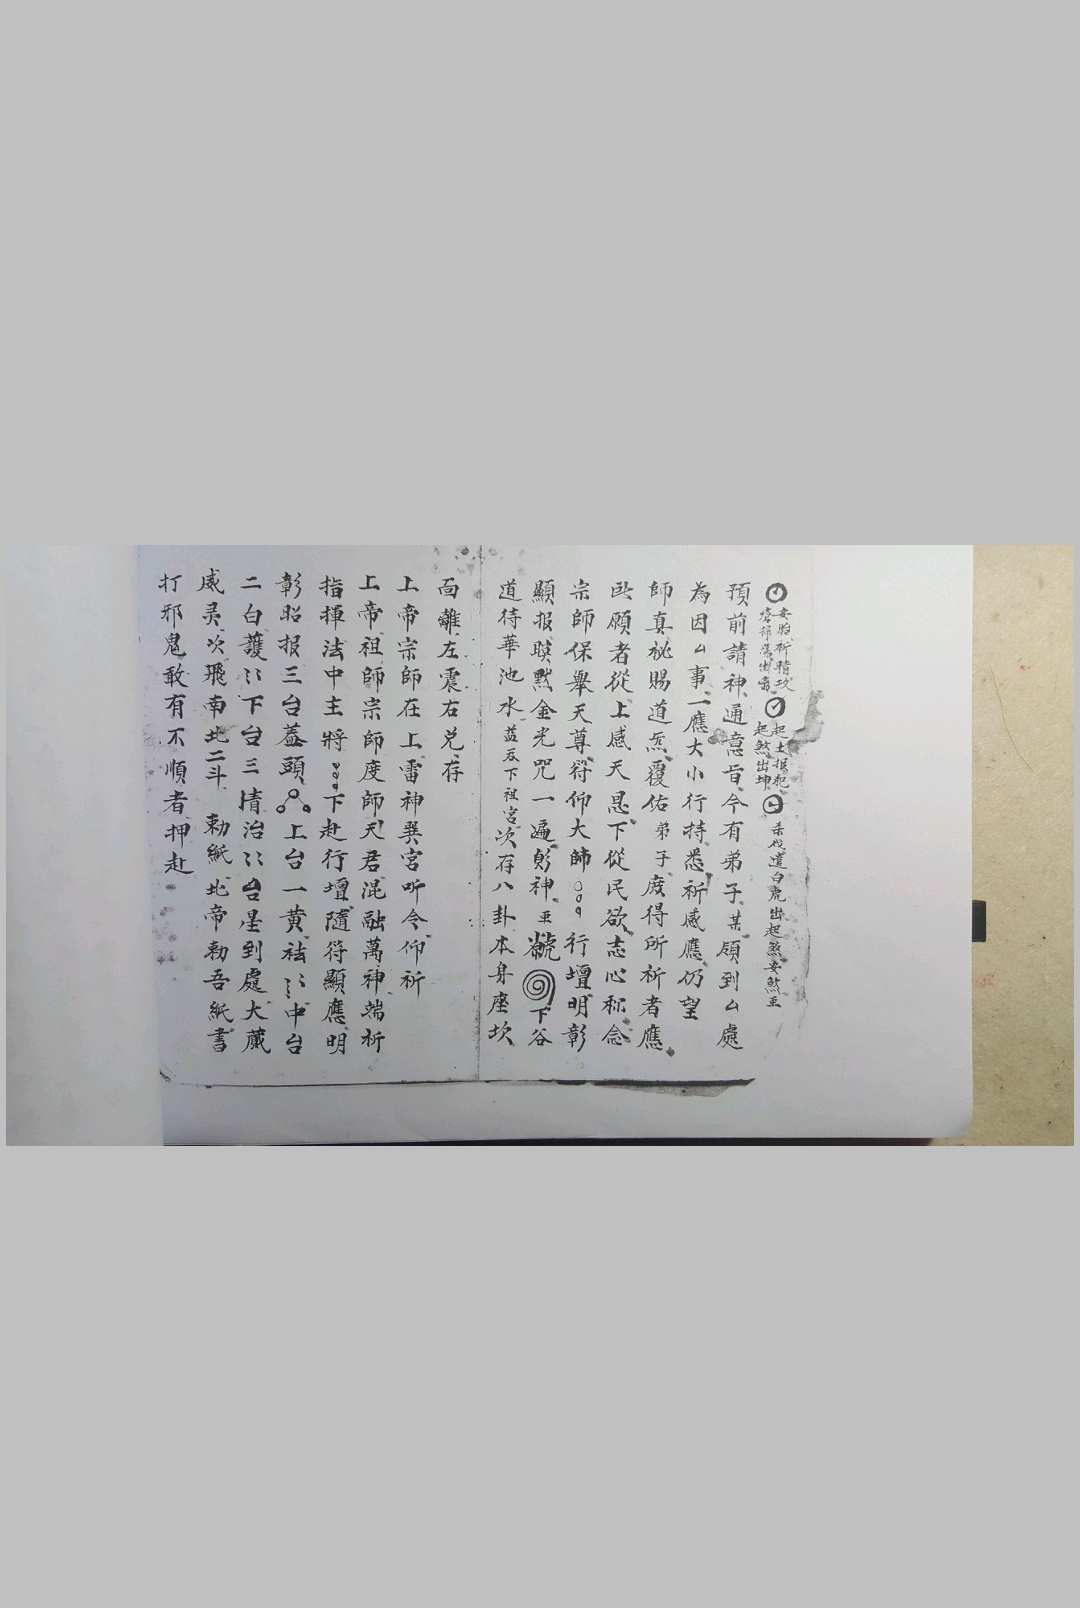 安胎祈禱改
起土报犯
起煞出坤
遣白虎出起煞安煞
預前請神通意旨今有弟子某頋到厶處
為因厶事一應大小行持悉祈感應仍望
師真祕賜道炁覆佑弟子庻得所祈者應
願者從上感天恩下從民欲志心称念
宗師保舉天尊符仰大師行壇明彰
顯报默金光咒一遍神下谷
道待華池水下祖宫次存八卦本身座坎
面離左震右兑存
上帝宗師在上雷神巽宮听令仰祈
上帝祖師宗師度師天君混融萬神端祈
指揮法中主將下赴行壇隨符顯應明
彰昭报三台蓋頭上台一黄祛中台
二白護下台三清治台星到處大藏
威灵次飛南北二斗勅紙北帝勅吾紙書
打邪鬼敢有不順者押赴